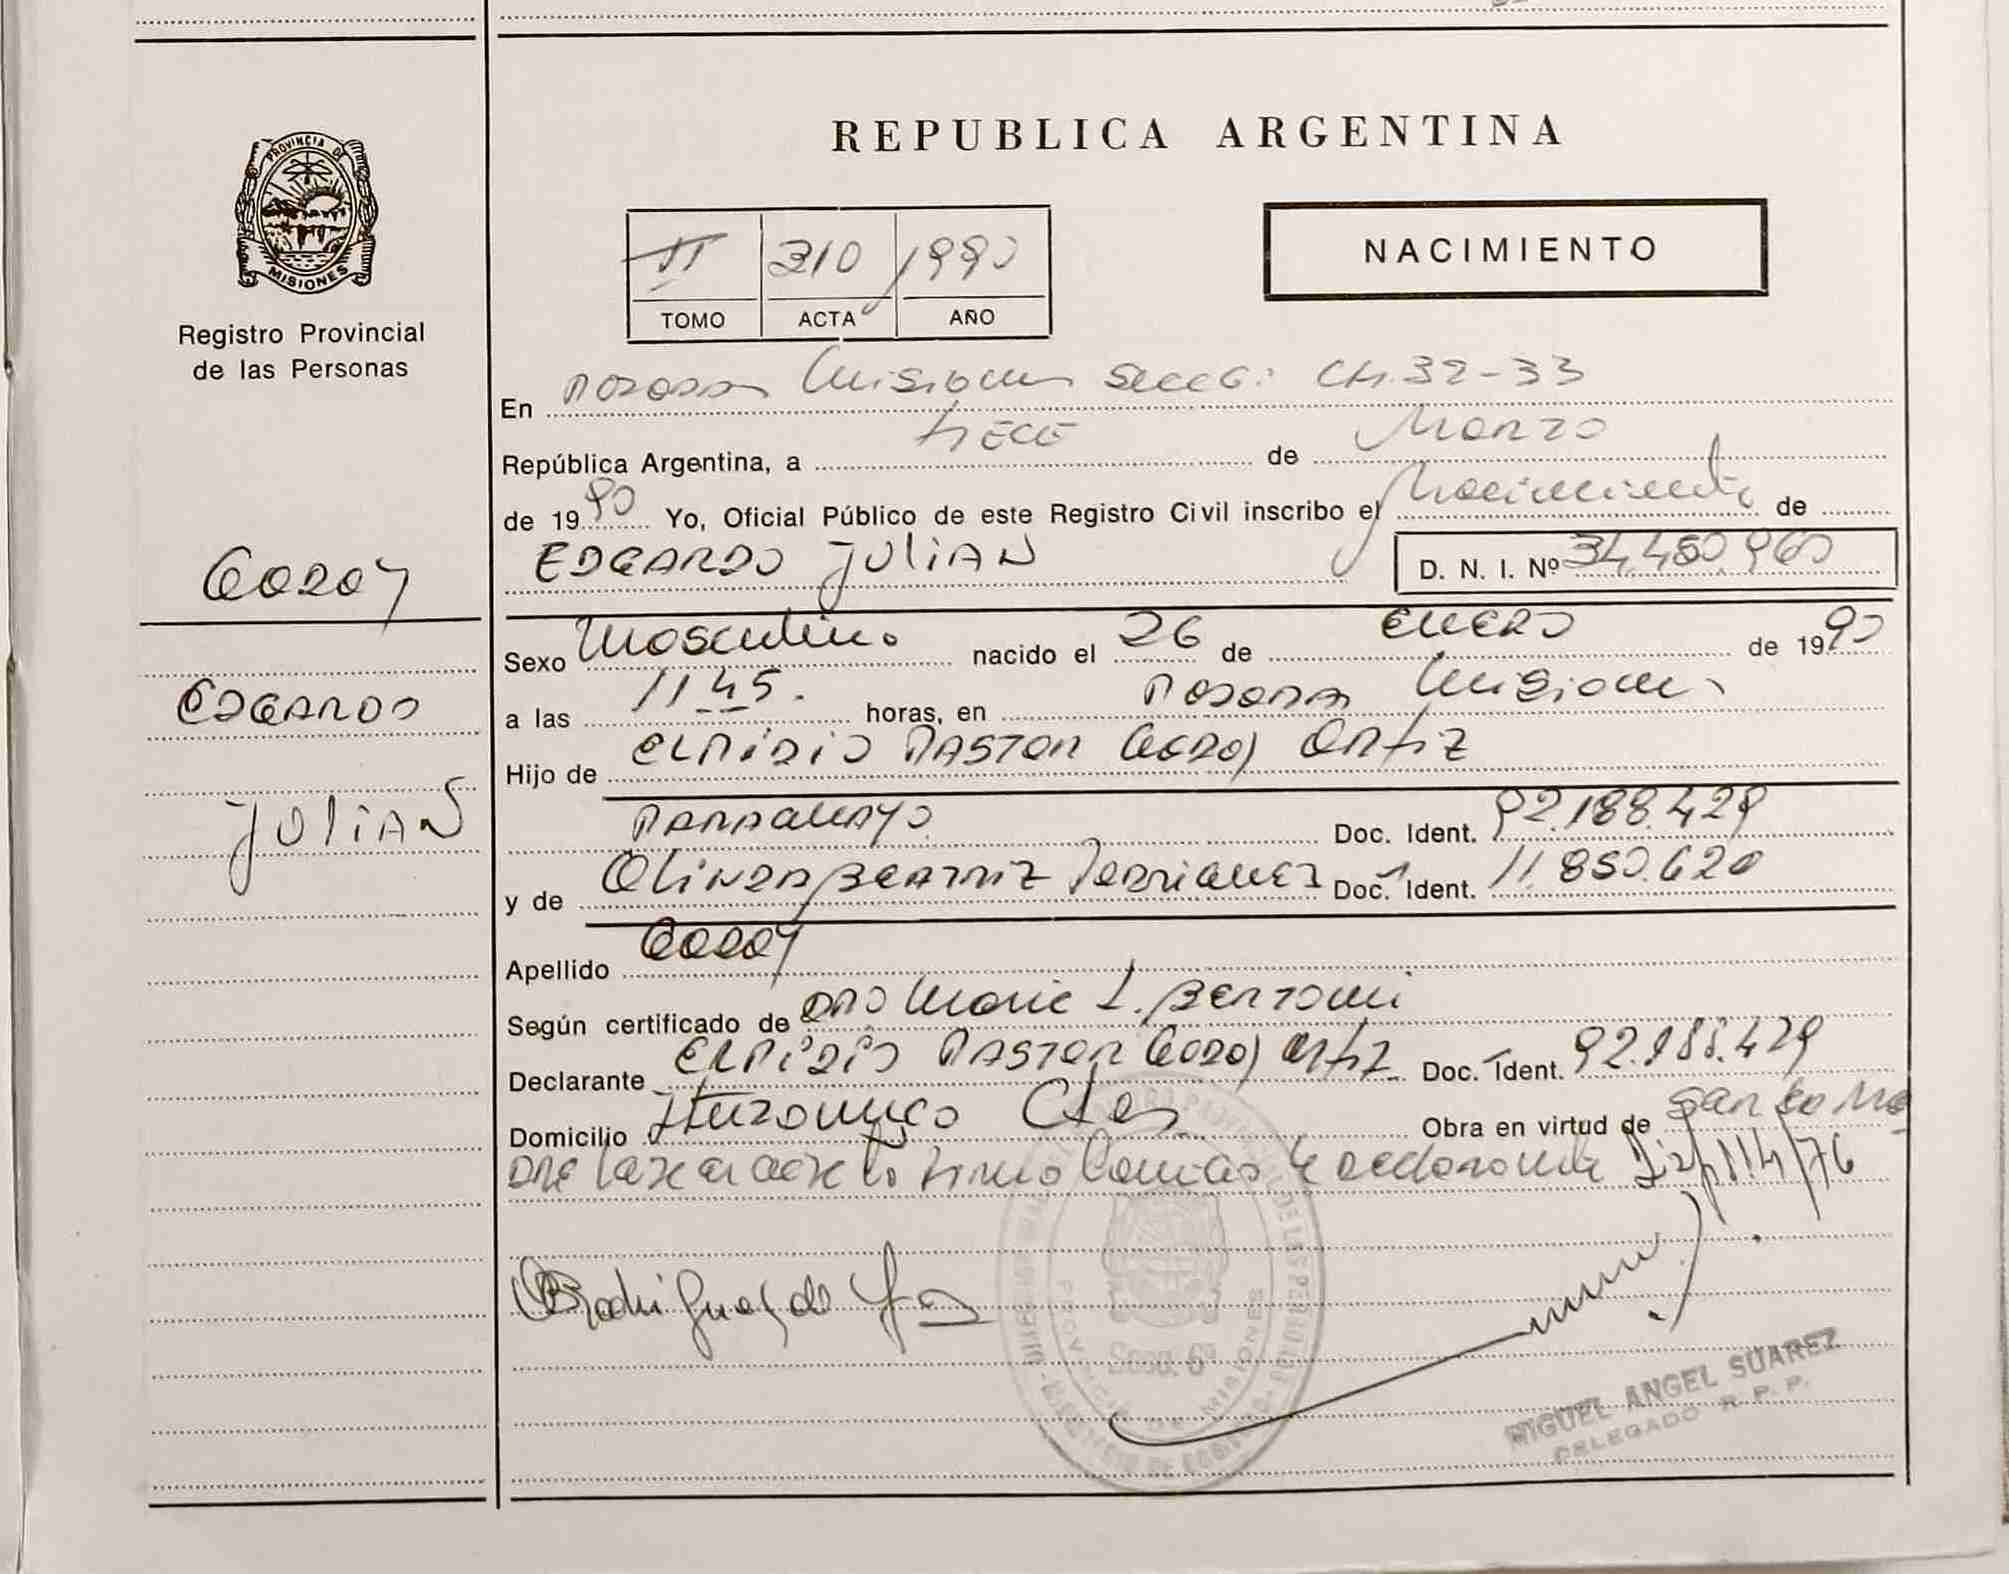 PROVINCIA DE
MISIONES
Registro Provincial
de las Personas
GODOY
EDGARDO
JULIAN
REPUBLICA ARGENTINA
NACIMIENTO
II 310 1990
TOMO ACTA AÑO
En Posadas Misiones Secc 6: CH. 32-33
República Argentina, a trece de Marzo
de 1990 Yo, Oficial Público de este Registro Civil inscribo el Nacimiento de
EDGARDO JULIAN D. N. I. Nº 34.480.960
Sexo Masculino nacido el 26 de ENERO de 1990
a las 11 45. horas, en Posadas Misiones
Hijo de ELPIDIO PASTOR GODOY ORTIZ
PARAGUAYO Doc. Ident. 92.188.429
y de OLINDA BEATRIZ Rodriguez Doc. Ident. 11.850.620
Apellido GODOY
Según certificado de Marie L. BERTONI
Declarante ELPIDIO PASTOR GODOY ORTIZ Doc. Ident. 92.188.429
Domicilio Ituzaingo Ctes Obra en virtud de
Declarante 114/76
Rodriguez de
Secc. 6ª
PROVINCIA DE MISIONES
MIGUEL ANGEL SUAREZ
DELEGADO R. P. P.